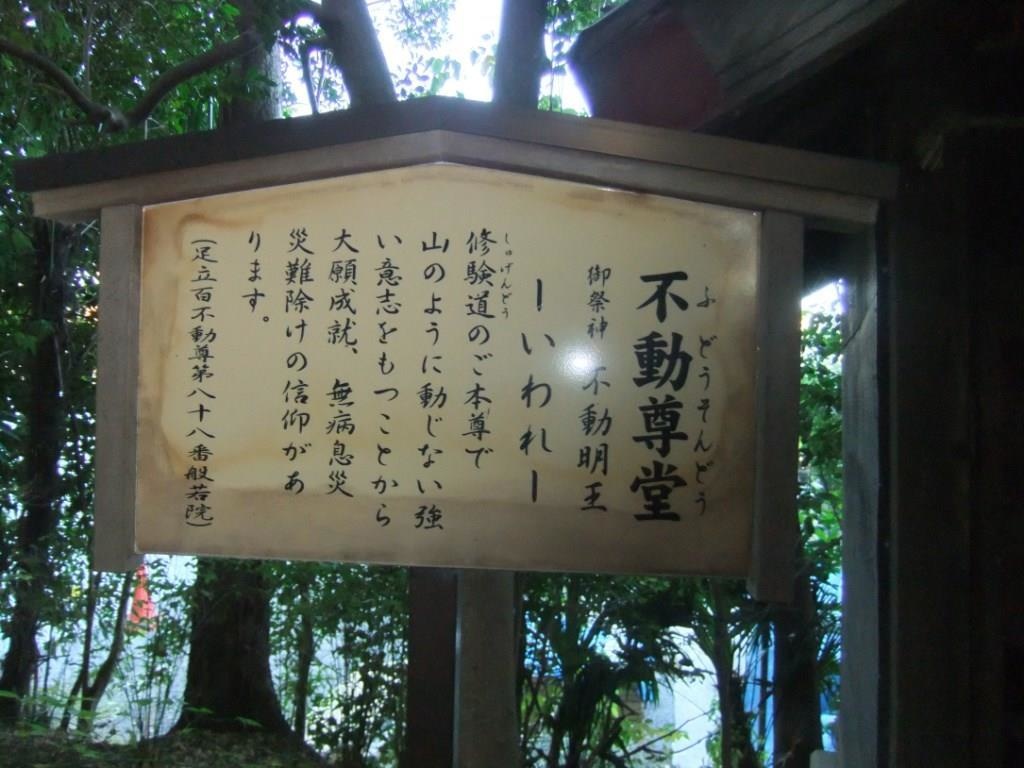 不動尊堂
ふどうそんどう
御祭神 不動明王
ーいわれー
修験道のご本尊で
しゅげんどう
山のように動じない強
い意志をもつことから
大願成就、無病息災
災難除けの信仰があ
ります。
(足立百不動尊第八十八番般若院)